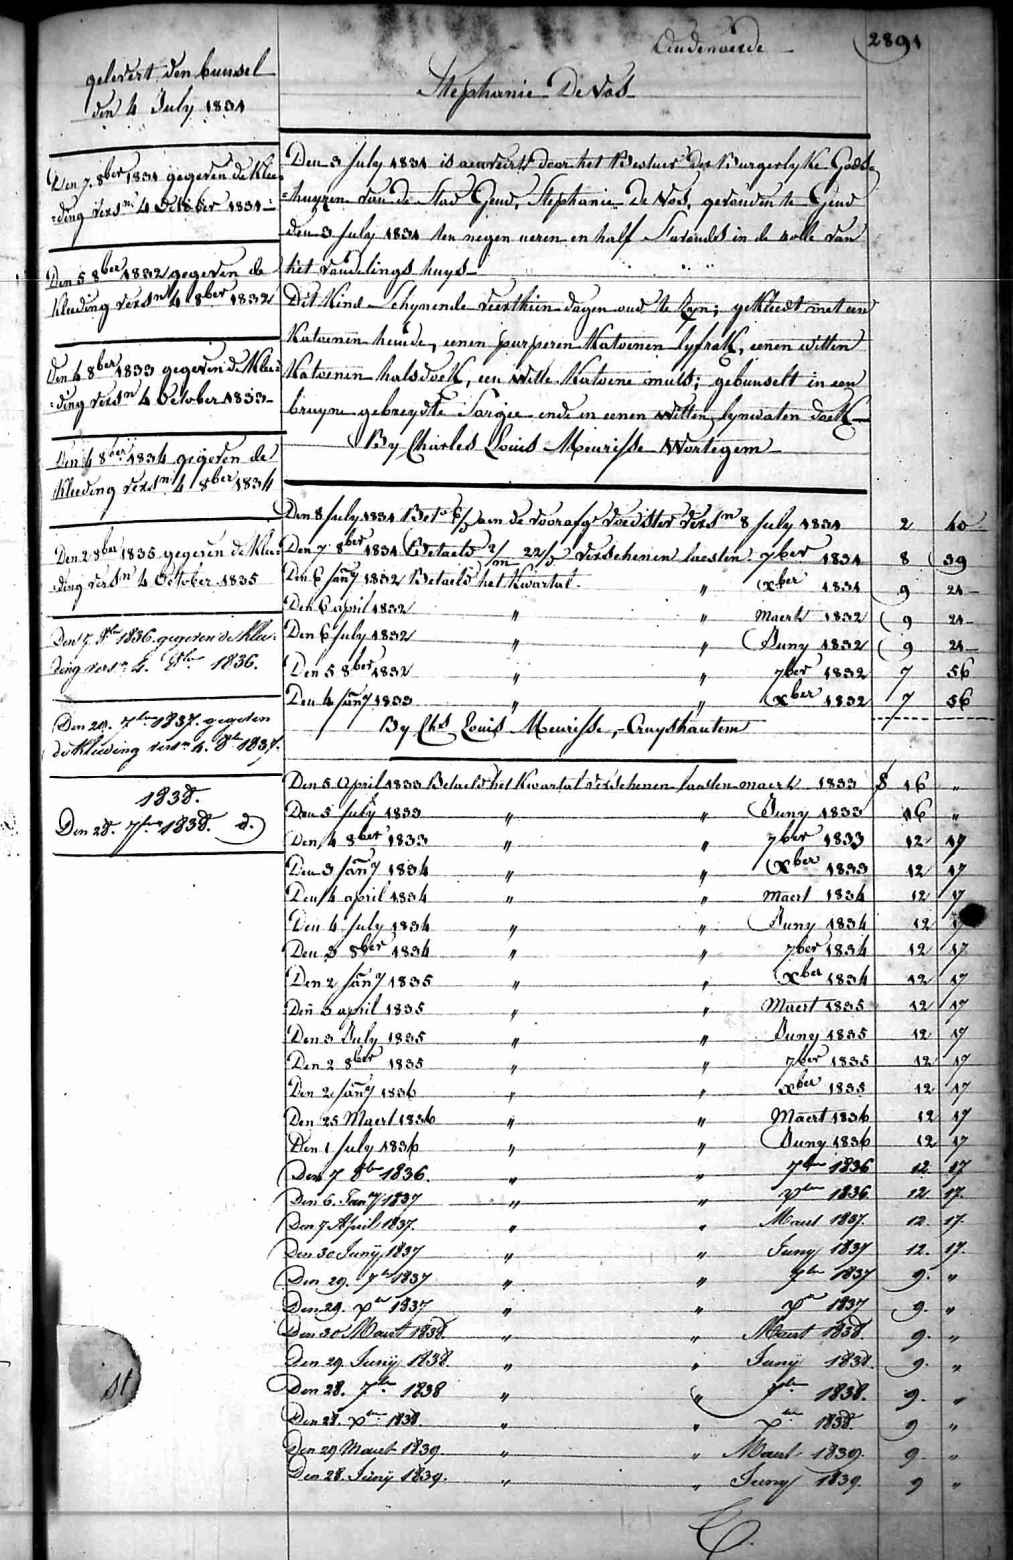 Oudenaerde
2891
Stephanie De Vos
gelevert den bunsel
den 4 July 1831
Den 7 8ber 1831 gegeven de klee=
=ding versn 4 October 1831
Den 5 8ber 1832 gegeven de
kleeding versn 4 8ber 1832
Den 4 8ber 1833 gegeven de klee=
=ding versn 4 October 1833
Den 4 8ber 1834 gegeven de
kleeding versn 4 8ber 1834
Den 2 8ber 1835 gegeven de klee=
=ding versn 4 October 1835
Den 7. 8ber 1836. gegeven de klee=
ding versn 4. 8ber 1836.
Den 29. 7ber 1837. gegeven
de kleeding versn 4. 8br 1837.
1838.
Den 28. 7ber 1838. d.)
Den 3 July 1831 is aenveird door het Bestuer der Burgerlyke Gods=
=huyzen van de Stad Gend, Stephanie De Vos, gevonden te Gend
den 3 July 1831 ten negen ueren en half s'avonds in de rolle van
het vondelings huys
Dit Kind schynende veerthien dagen oud te zyn; gekleedt met een
Katoenen hemde, eenen purperen Katoenen lyfrok, eenen witten
Katoenen halsdoek, een witte Katoene muts; gebunselt in een
bruyne gebreydte Sargie ende in eenen witten lynwaten doek
By Charles Louis Meurisse Wortegem
Den 8 July 1831 Bet. aen de voorafge voedster versn 8 July 1831 2 40
Den 7 8ber 1831 Betaeld 2/m 22/j verschenen laesten 7ber 1831 8 39
Den 6 Jany 1832 Betaeld het Kwartal " xber 1831 9 24
Den 6 april 1832 " " Maert 1832 9 24
Den 6 July 1832 " " Juny 1832 9 24
Den 5 8ber 1832 " " 7ber 1832 7 56
Den 4 Jany 1833 " " xber 1832 7 56
By Chs Louis Meurisse, Cruyshautem
Den 5 April 1833 Betaeld het Kwartal verschenen laesten maert 1833 16 "
Den 5 July 1833 " " Juny 1833 16 "
Den 4 8ber 1833 " " 7ber 1833 12 17
Den 3 Jany 1834 " " xber 1833 12 17
Den 4 april 1834 " " Maert 1834 12 17
Den 4 July 1834 " " Juny 1834 12 17
Den 3 8ber 1834 " " 7ber 1834 12 17
Den 2 Jany 1835 " " xber 1834 12 17
Den 3 april 1835 " " Maert 1835 12 17
Den 3 July 1835 " " Juny 1835 12 17
Den 2 8ber 1835 " " 7ber 1835 12 17
Den 2 Jany 1836 " " xber 1835 12 17
Den 25 Maert 1836 " " Maert 1836 12 17
Den 1 July 1836 " " Juny 1836 12 17
Den 7 8ber 1836. " " 7ber 1836 12 17
Den 6. Jany 1837 " " xber 1836 12 17.
Den 7 April 1837. " " Maert 1837. 12. 17.
Den 30 Juny 1837 " " Juny 1837 12. 17.
Den 29. 7br 1837 " " 7ber 1837 9. "
Den 29. xbr 1837 " " xbr 1837 9. "
Den 30 Maert 1838. " " Maert 1838. 9. "
Den 29 Juny 1838. " " Juny 1838. 9. "
Den 28. 7ber 1838 " " 7ber 1838. 9. "
Den 28. xber 1838. " " xber 1838. 9 "
Den 29 Maert 1839. " " Maert 1839. 9. "
Den 28. Juny 1839. " " Juny 1839. 9 "
st